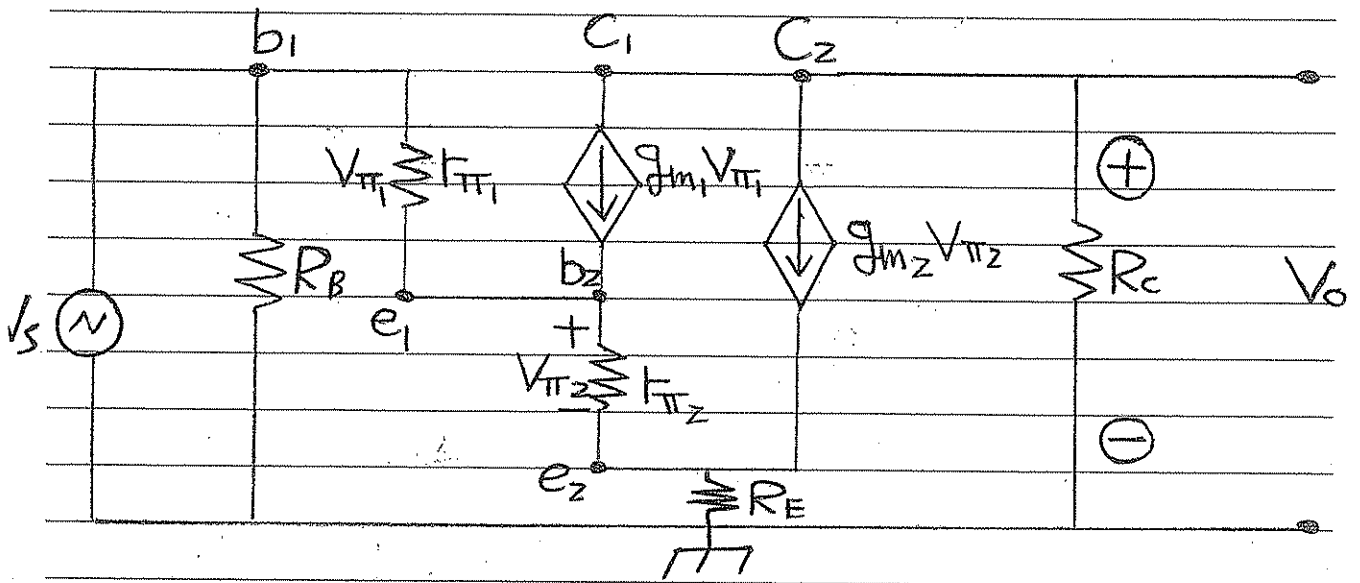 b1
C1
C2
Vπ1
rπ1
gm1Vπ1
+
RB
b2
gm2Vπ2
RC
Vo
Vs
e1
+
Vπ2
rπ2
−
−
e2
RE